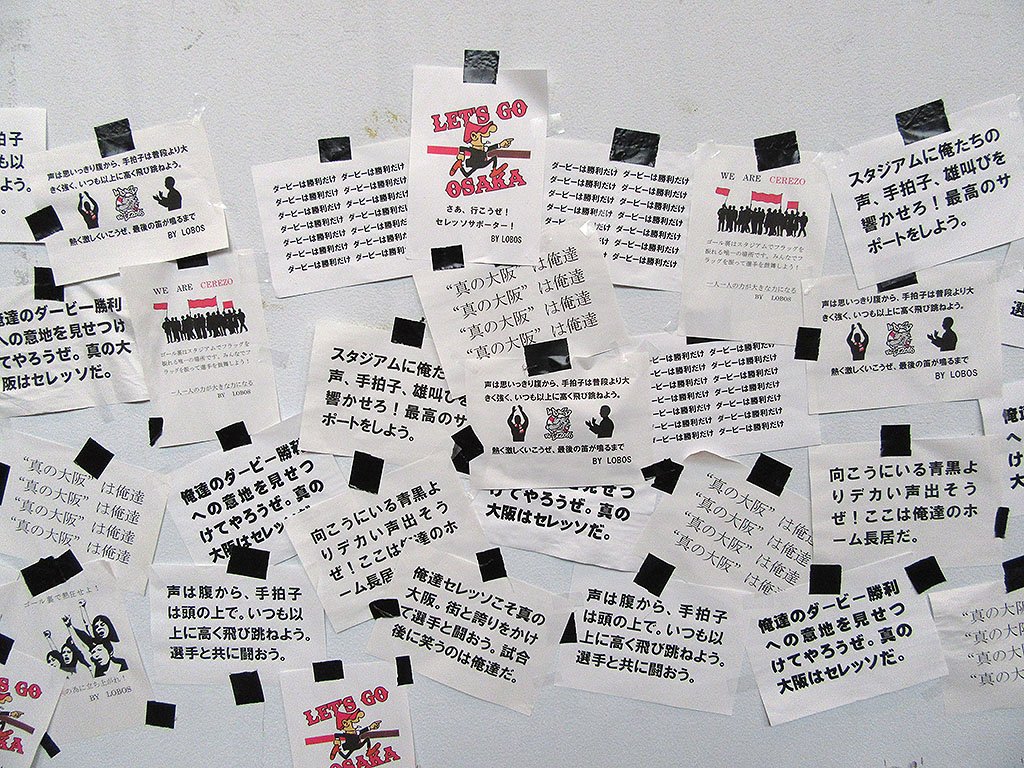 声は思いっきり腹から、手拍子は普段より大
きく強く、いつも以上に高く飛び跳ねよう。
熱く激しくいこうぜ、最後の笛が鳴るまで
BY LOBOS
ダービーは勝利だけ ダービーは勝利だけ
ダービーは勝利だけ ダービーは勝利だけ
ダービーは勝利だけ ダービーは勝利だけ
ダービーは勝利だけ ダービーは勝利だけ
ダービーは勝利だけ ダービーは勝利だけ
ダービーは勝利だけ ダービーは勝利だけ
LET'S GO
OSAKA
さぁ、行こうぜ!
セレッソサポーター!
BY LOBOS
ダービーは勝利だけ ダービーは勝利だけ
ダービーは勝利だけ ダービーは勝利だけ
ダービーは勝利だけ ダービーは勝利だけ
ダービーは勝利だけ ダービーは勝利だけ
ダービーは勝利だけ ダービーは勝利だけ
ダービーは勝利だけ
WE ARE CEREZO
ゴール裏はスタジアムでフラッグを
振れる唯一の場所です。みんなでフ
ラッグを振って選手を鼓舞しよう!
一人一人の力が大きな力になる
BY LOBOS
スタジアムに俺たちの
声、手拍子、雄叫びを
響かせろ!最高のサ
ポートをしよう。
俺達のダービー勝利
への意地を見せつけ
てやろうぜ。真の大
阪はセレッソだ。
WE ARE CEREZO
ゴール裏はスタジアムでフラッグを
振れる唯一の場所です。みんなでフ
ラッグを振って選手を鼓舞しよう!
一人一人の力が大きな力になる
BY LOBOS
スタジアムに俺た
声、手拍子、雄叫びを
響かせろ!最高のサ
ポートをしよう。
“真の大阪” は俺達
“真の大阪” は俺達
“真の大阪” は俺達
“真の大阪” は俺達
声は思いっきり腹から、手拍子は普段より大
きく強く、いつも以上に高く飛び跳ねよう。
熱く激しくいこうぜ、最後の笛が鳴るまで
BY LOBOS
ダービーは勝利だけ ダービーは勝利だけ
ダービーは勝利だけ ダービーは勝利だけ
ダービーは勝利だけ ダービーは勝利だけ
ダービーは勝利だけ ダービーは勝利だけ
ダービーは勝利だけ ダービーは勝利だけ
ダービーは勝利だけ ダービーは勝利だけ
声は思いっきり腹から、手拍子は普段より大
きく強く、いつも以上に高く飛び跳ねよう。
熱く激しくいこうぜ、最後の笛が鳴るまで
BY LOBOS
“真の大阪” は俺達
“真の大阪” は俺達
“真の大阪” は俺達
“真の大阪” は俺達
俺達のダービー勝利
への意地を見せつ
けてやろうぜ。真の
大阪はセレッソ
向こうにいる青黒よ
りデカい声出そう
ぜ!ここは俺達のホ
ーム長居
けてやろうぜ。真の
大阪はセレッソだ。
“真の大阪” は俺
“真の大阪” は俺達
“真の大阪” は俺達
“真の大阪” は俺達
向こうにいる青黒よ
りデカい声出そう
ぜ!ここは俺達のホ
ーム長居だ。
ゴール裏で熱狂せよ!
の為に立ち上がれ!
BY LOBOS
声は腹から、手拍子
は頭の上で。いつも以
上に高く飛び跳ねよう。
選手と共に闘おう。
俺達セレッソこそ真の
大阪。街と誇りをかけ
て選手と闘う。試合
後に笑うのは俺達だ。
声は腹から、手拍子
は頭の上で。いつも以
上に高く飛び跳ねよう。
選手と共に闘おう。
俺達のダービー勝利
への意地を見せつ
けてやろうぜ。真の
大阪はセレッソだ。
“真の大阪
“真の大阪
“真の大阪
“真の大阪
'S GO
AKA
LET'S GO
OSAKA